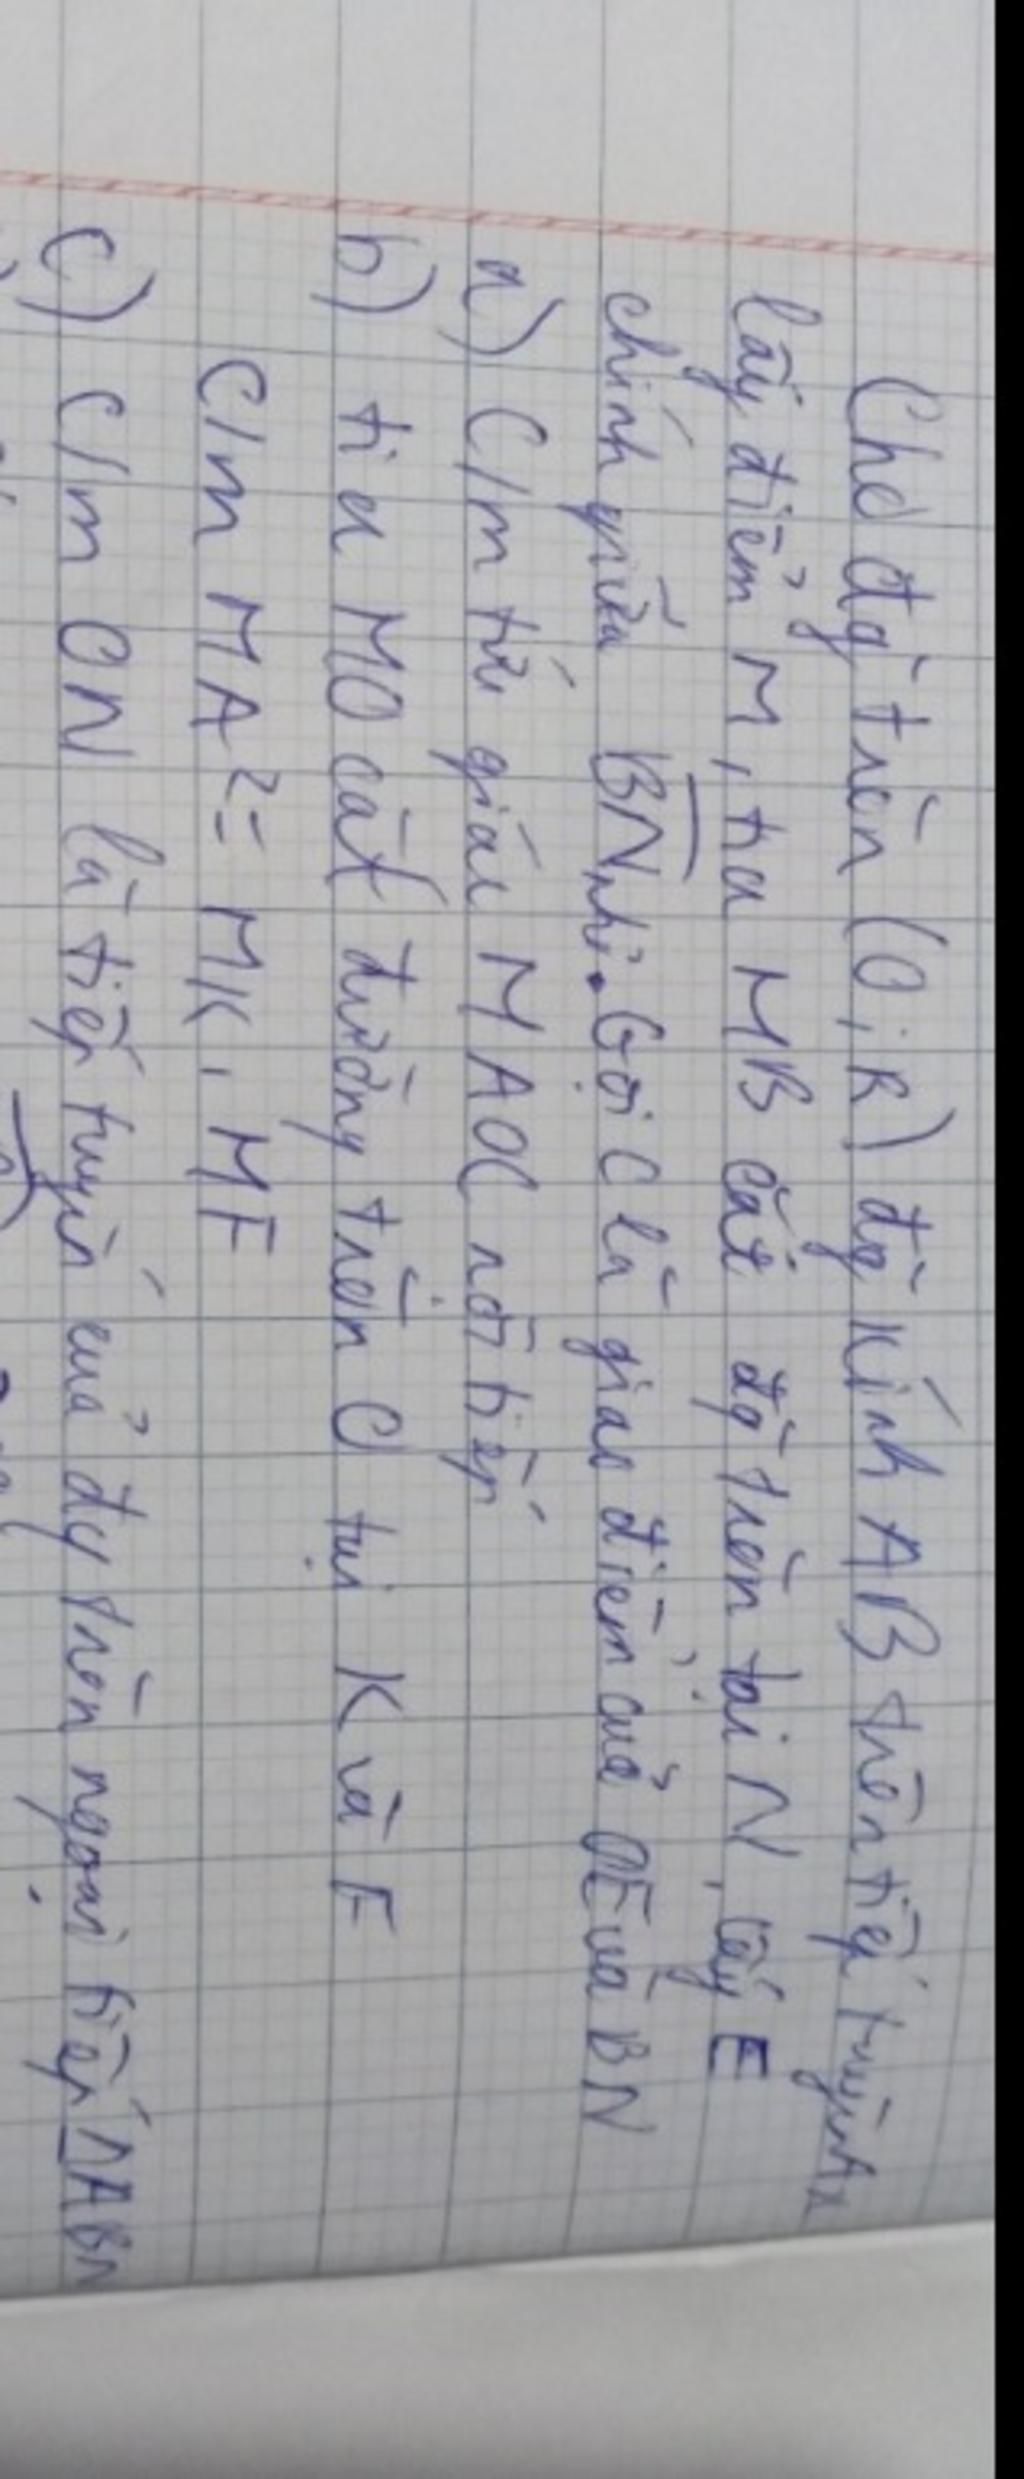 Cho đg tròn (O;R) đg kính AB trên tiếp tuyến Ax
lấy điểm M, tia MB cắt đg tròn tại N, lấy E
chính giữa BN nhỏ. Gọi C là giao điểm của OE và BN
a) C/m tứ giác MAOC nội tiếp
b) tia MO cắt đường tròn O tại K và F
C/m MA² = MK, MF
c) C/m ON là tiếp tuyến của đg tròn ngoại tiếp